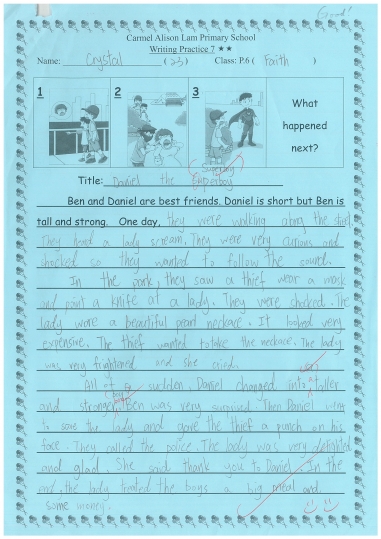 Good!
Carmel Alison Lam Primary School
Writing Practice 7 ★★
Name: Crystal (23) Class: P.6 ( Faith )
1 2 3 What
happened
next?
Superboy
Title: Daniel the Superboy
Ben and Daniel are best friends. Daniel is short but Ben is
tall and strong. One day, they were walking along the street.
They heard a lady scream. They were very curious and
shocked so they wanted to follow the sound.
In the park, they saw a thief wear a mask
and point a knife at a lady. They were shocked. The
lady wore a beautiful pearl neckace. It looked very
expensive. The thief wanted to take the neckace. The lady
was very frightened and she cried.
All of a sudden, Daniel changed into taller
and stronger. Ben was very surprised. Then Daniel went
to save the lady and gave the thief a punch on his
face. They called the police. The lady was very delighted
and glad. She said thank you to Daniel. In the
end, the lady treated the boys a big meal and
some money.